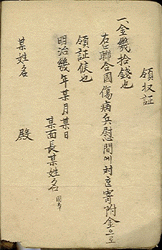 領収証
一金幾拾錢也
右는聯合國傷病兵慰問에対한寄附金으로
領証候也
明治幾年某月某日
某面長某姓名
某姓名 殿